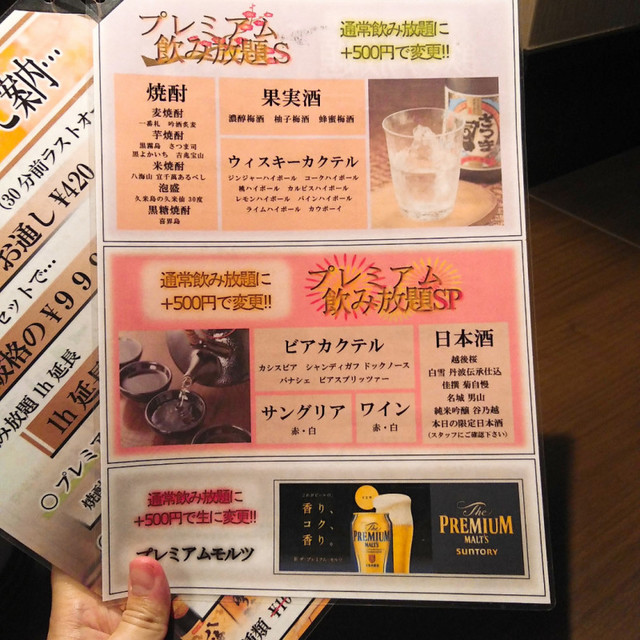 プレミアム
飲み放題S
通常飲み放題に
+500円で変更!!
焼酎
麦焼酎
一番札 吟酒麦
芋焼酎
黒霧島 さつま司
黒よかいち 吉兆宝山
米焼酎
八海山 宜千萬あるべし
泡盛
久米島の久米仙 30度
黒糖焼酎
喜界島
果実酒
濃醇梅酒 柚子梅酒 蜂蜜梅酒
ウィスキーカクテル
ジンジャーハイボール コークハイボール
桃ハイボール カルピスハイボール
レモンハイボール パインハイボール
ライムハイボール カウボーイ
通常飲み放題に
+500円で変更!!
プレミアム
飲み放題SP
ビアカクテル
カシスビア シャンディガフ ドックノーズ
パナシェ ビアスプリッツァー
サングリア
赤・白
ワイン
赤・白
日本酒
越後桜
白雪 丹波伝承仕込
佳撰 菊自慢
名城 男山
純米吟醸 谷乃越
本日の限定日本酒
(スタッフにご確認下さい)
通常飲み放題に
+500円で生に変更!!
プレミアムモルツ
香り、
コク、
香り。
The
PREMIUM
MALT'S
SUNTORY
ご案内…
(30分前ラストオー
お通し ¥420
セットで…
破格の ¥999
み放題 1h 延長
1h 延長
○プレミア
焼酎
種類